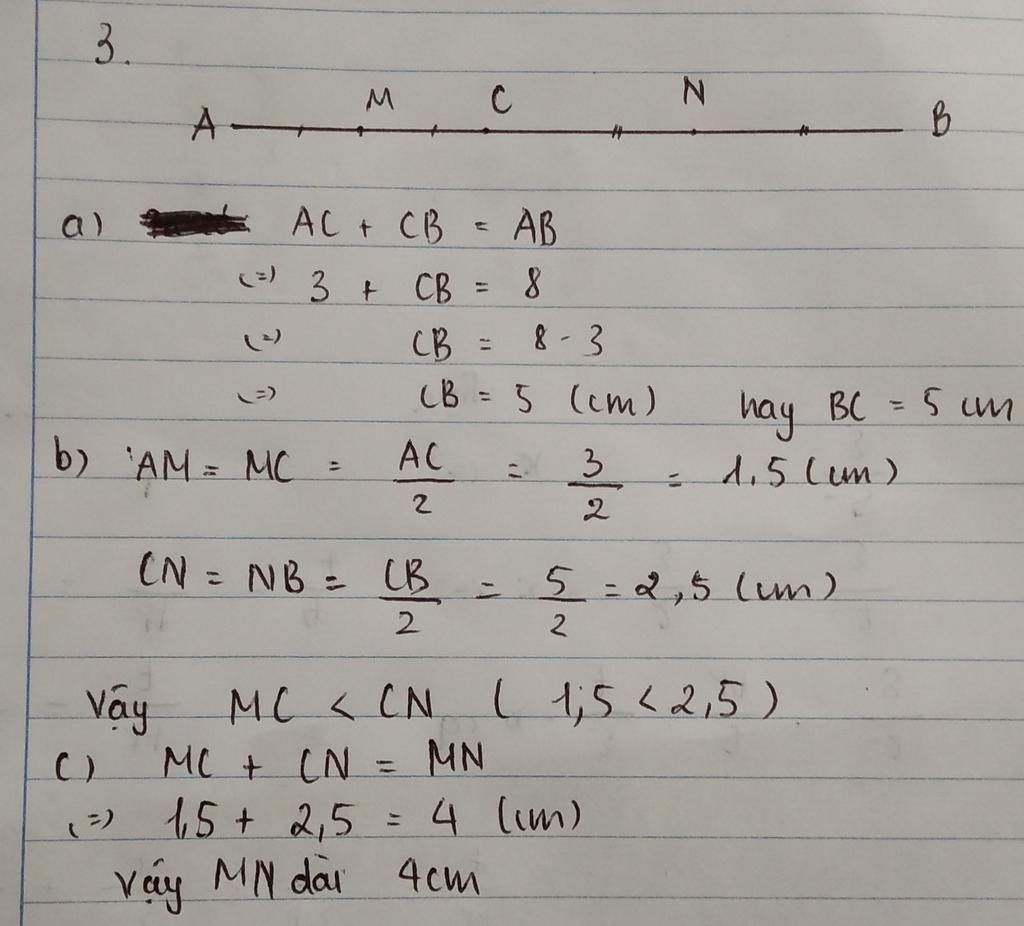 3.
A M C N B
a) AC + CB = AB
(=) 3 + CB = 8
(=) CB = 8 - 3
(=) CB = 5 (cm) hay BC = 5 cm
b) AM = MC = AC/2 = 3/2 = 1,5 (cm)
CN = NB = CB/2 = 5/2 = 2,5 (cm)
Vậy MC < CN ( 1,5 < 2,5 )
c) MC + CN = MN
(=) 1,5 + 2,5 = 4 (cm)
Vậy MN dài 4cm